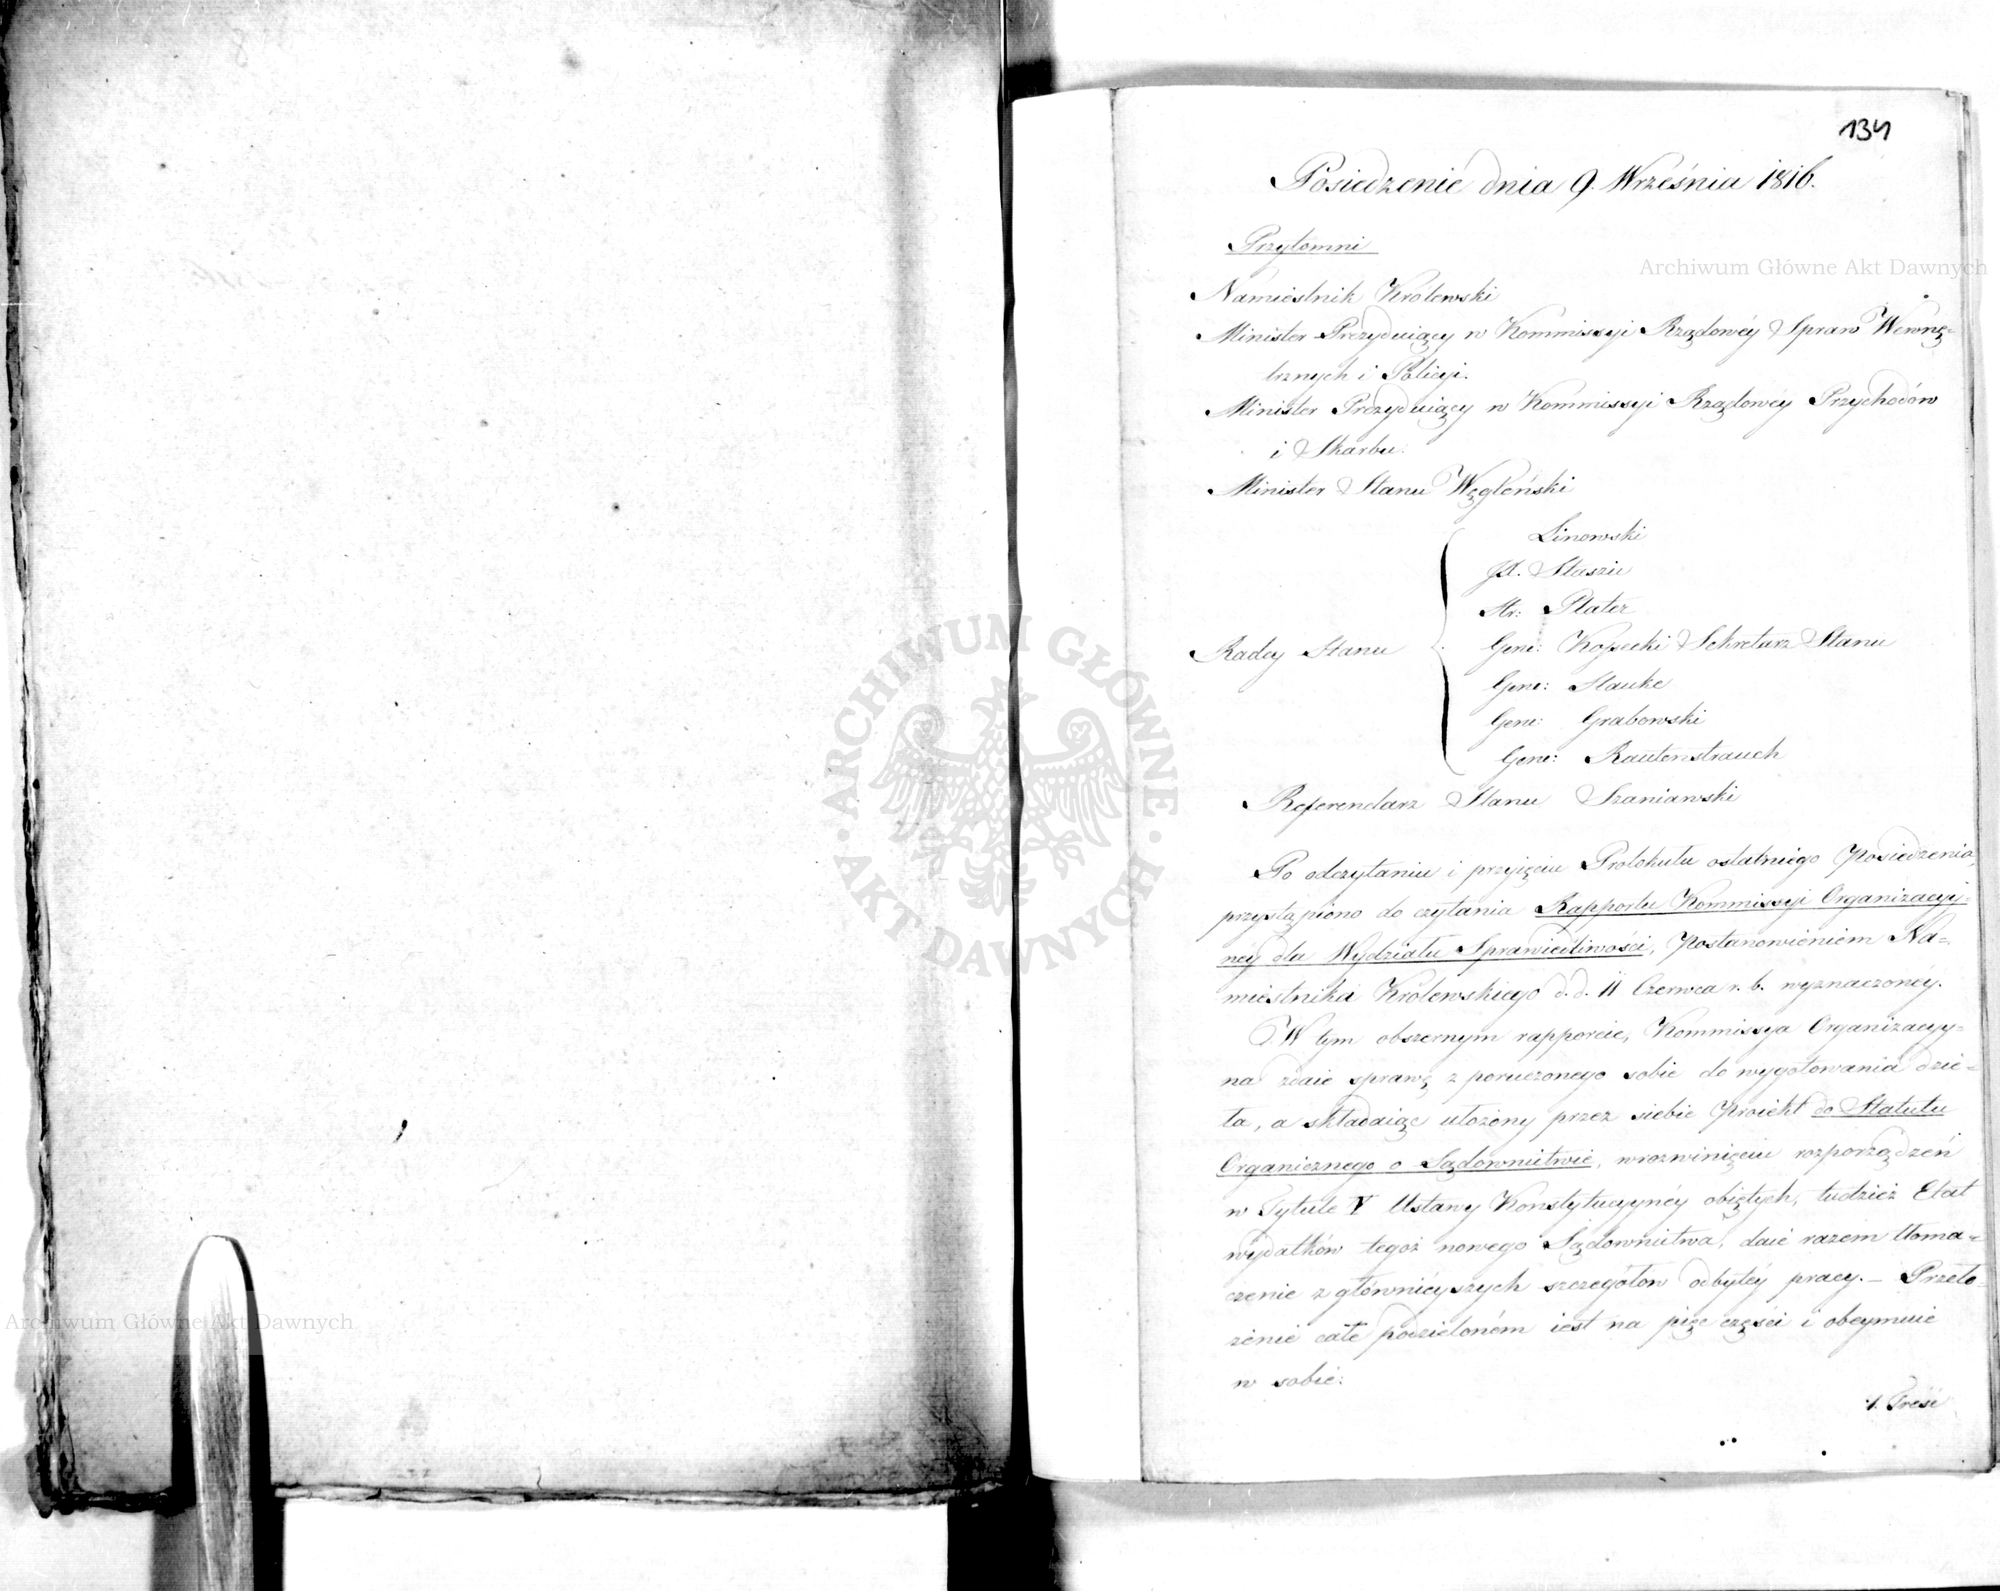 134
Posiedzenie dnia 9. Września 1816.
Przytomni
Archiwum Główne Akt Dawnych
Namiestnik Królewski
Minister Prezyduiący w Kommissyi Rządowéy Spraw Wewnę=
trznych i Policyi.
Minister Prezyduiący w Kommissyi Rządowéy Przychodów
i Skarbu.
Minister Stanu Węgleński
Linowski
Staszic
Plater
Radcy Stanu
Gene: Kossecki Sekretarz Stanu
Gene: Hauke
Gene: Grabowski
Gene: Rautenstrauch
Referendarz Stanu Szaniawski
ARCHIWUM GŁÓWNE AKT DAWNYCH
Po odczytaniu i przyięciu Protokułu ostatniego Posiedzenia,
przystąpiono do czytania Rapportu Kommissyi Organizacyi=
néy dla Wydziału Sprawiedliwości, Postanowieniem Na=
miestnika Królewskiego d. d. 11 Czerwca r. b. wyznaczonéy.
W tym obszernym rapporcie, Kommissya Organizacyy=
na zdaie sprawę z poruczonego sobie do wygotowania dzie=
ła, a składaiąc ułożony przez siebie Proiekt do Statutu
Organicznego o Sądownictwie, w rozwinięciu rozporządzeń
w Tytule V Ustawy Konstytucyynéy obiętych, tudzież Etat
wydatków tegoż nowego Sądownictwa, daie razem tłoma=
czenie z główniéyszych szczegółów odbytéy pracy. – Przeło
żenie całe podzieloném iest na pięć części i obeymuie
w sobie:
1. Treść
Archiwum Główne Akt Dawnych